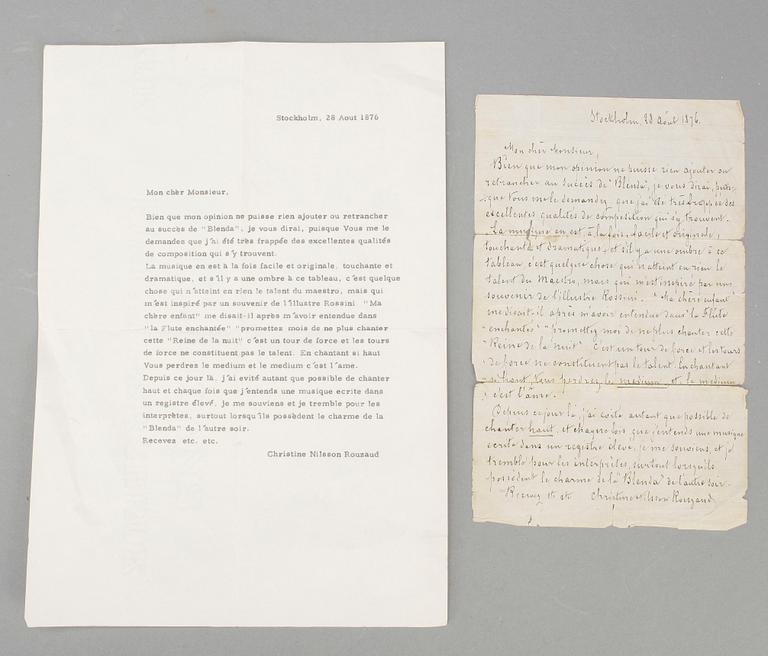 Stockholm, 28 Aout 1876
Mon chèr Monsieur,
Bien que mon opinion ne puisse rien ajouter ou retrancher
au succès de "Blenda", je vous dirai, puisque Vous me le
demandes que j'ai été très frappée des excellentes qualités
de composition qui s'y trouvent.
La musique en est à la fois facile et originale, touchante et
dramatique, et s'il y a une ombre à ce tableau, c'est quelque
chose qui n'atteint en rien le talent du maestro, mais qui
m'est inspiré par un souvenir de l'illustre Rossini "Ma
chère enfant" me disait-il après m'avoir entendue dans
"la Flute enchantée" "promettes mois de ne plus chanter
cette "Reine de la nuit" c'est un tour de force et les tours
de force ne constituent pas le talent. En chantant si haut
Vous perdres le medium et le medium c'est l'ame.
Depuis ce jour là, j'ai evité autant que possible de chanter
haut et chaque fois que j'entends une musique ecrite dans
un registre élevé, je me souviens et je tremble pour les
interprètes, surtout lorsqu'ils possèdent le charme de la
"Blenda" de l'autre soir.
Recevez etc. etc.
Christine Nilsson Rouzaud
Stockholm, 28 Aôut 1876.
Mon chèr Monsieur,
Bien que mon opinion ne puisse rien ajouter ou
retrancher au succès de "Blenda", je vous dirai, puis-
que Vous me le demandez, que j'ai été très frappée des
excellentes qualités de composition qui s'y trouvent.
La musique en est, à la fois, facile et originale,
touchante et dramatique, et s'il y a une ombre à ce
tableau c'est quelque chose qui n'atteint en rien le
talent du Maestro, mais qui m'est inspiré par un
souvenir de l'illustre Rossini. "Ma chère enfant"
me disait-il après m'avoir entendue dans "la Flûte
enchantée" "promettez moi de ne plus chanter cette
"Reine de la nuit" C'est un tour de force et les tours
de force ne constituent pas le talent. En chantant
si haut, Vous perdrez le medium et le medium
c'est l'âme.
Depuis ce jour là, j'ai évité autant que possible de
chanter haut, et chaque fois que j'entends une musique
ecrite dans un registre élevé, je me souviens, et je
tremble pour les interprètes, surtout lorsqu'ils
possèdent le charme de la "Blenda" de l'autre soir.
Recevez etc etc Christine Nilsson Rouzaud